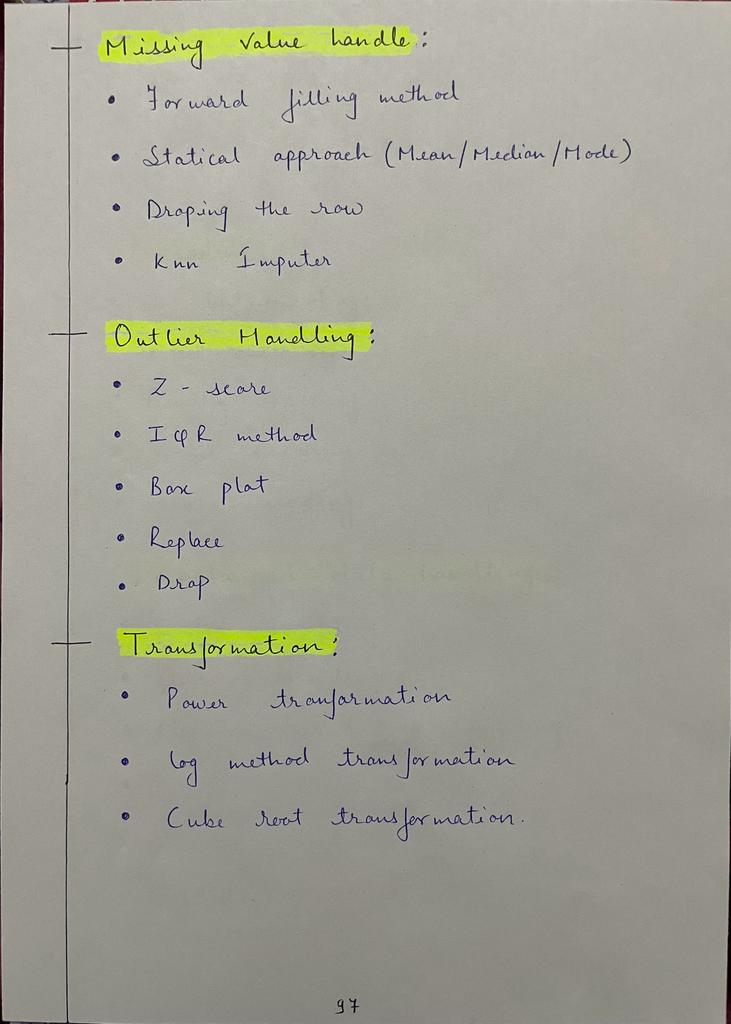 Missing Value handle:
• Forward filling method
• Statical approach (Mean/Median/Mode)
• Droping the row
• Knn Imputer
Outlier Handling:
• Z - score
• IQR method
• Box plot
• Replace
• Drop
Transformation:
• Power tranformation
• log method transformation
• Cube root transformation.
97